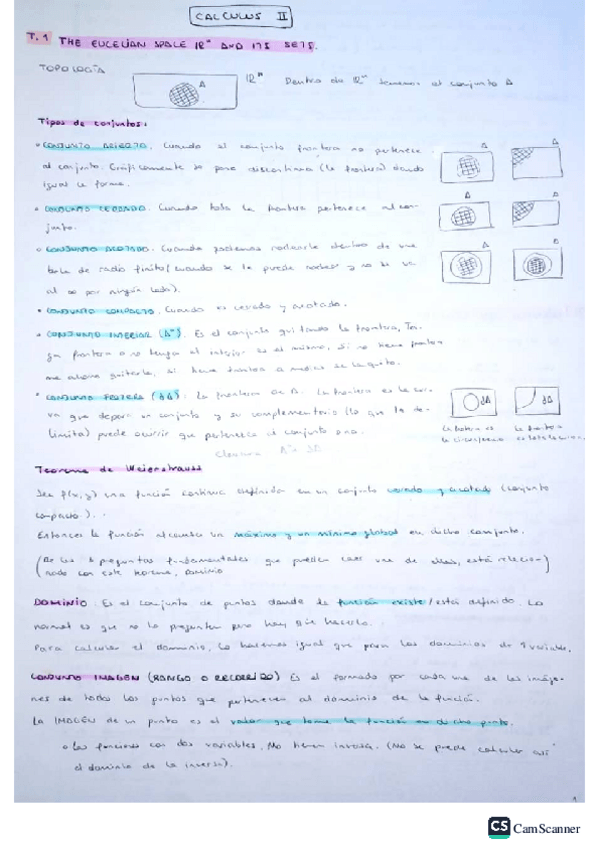 CALCULUS II
T.1 THE EUCELIAN SPACE IRⁿ AND ITS SETS.
TOPOLOGÍA
A
IRⁿ Dentro de IRⁿ tenemos al conjunto A
Tipos de conjuntos:
CONJUNTO ABIERTO. Cuando el conjunto frontera no pertenece
al conjunto. Gráficamente se pone discontinua (la frontera) dando
igual la forma.
A
CONJUNTO CERRADO. Cuando toda la frontera pertenece al con-
junto.
A
CONJUNTO ACOTADO. Cuando podemos rodearle dentro de una
bola de radio finito/cuando se le puede rodear y no se va
al ∞ por ningún lado).
CONJUNTO COMPACTO. Cuando es cerrado y acotado.
CONJUNTO INTERIOR (A°). Es el conjunto quitando la frontera,
frontera o no tenga el interior es el mismo, si no tiene frontera
CONJUNTO (∂A). La frontera de A. La frontera es la cur-
va que separa un conjunto y su complementario (lo que la de-
limita) puede ocurrir que pertenezca al conjunto o no.
∂A
∂A
la frontera es
la circunferencia
la frontera
Teorema de Weierstrauss
Sea f(x,y) una función continua definida en un conjunto cerrado y acotado (conjunto
compacto).
Entonces la función alcanza un máximo y un mínimo global en dicho conjunto.
(De las preguntas fundamentales que pueden caer una de ellas, está relacio-
nada con este teorema, DOMINIO
DOMINIO: Es el conjunto de puntos donde la función existe/está definida. Lo
normal es que no lo pregunten pero hay que hacerlo.
Para calcular el dominio, lo hacemos igual que para los dominios de 1 variable.
CONJUNTO IMAGEN (RANGO O RECORRIDO) Es el formado por cada una de las imáge-
nes de todos los puntos que pertenecen al dominio de la función.
La IMAGEN de un punto es el valor que toma la función en dicho punto.
Las funciones con dos variables, no tienen inversa. (No se puede calcular así
el dominio de la inversa).
1
CS CamScanner